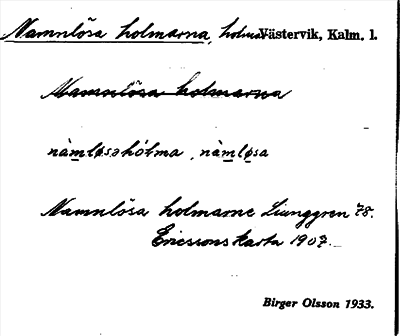 Namnlösa holmarna, holmar Västervik, Kalm. l.
Namnlösa holmarna
nàmløsahólma, nàmløsa
Namnlösa holmarne Ljunggren 78.
Ericssons karta 1907.
Birger Olsson 1933.